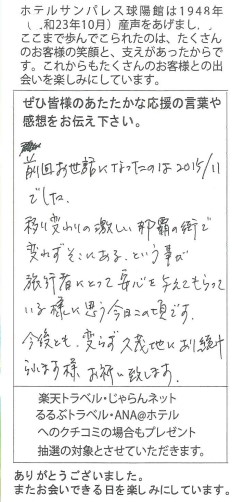 ホテルサンパレス球陽館は1948年
和23年10月）産声をあげまし
ここまで歩んでこられたのは、たくさん
のお客様の笑顔と、支えがあったからで
す。これからもたくさんのお客様との出
会いを楽しみにしています。
ぜひ皆様のあたたかな応援の言葉や
感想をお伝え下さい。
前回お世話になったのは2015/11
でした。
移り変わりの激しい那覇の街で
変わらずそこにある、という事が
旅行者にとって安心を与えてもらって
いる様に思う今日この頃です。
今後とも、変らず久茂地にあり続け
られます様お祈い致します。
楽天トラベル・じゃらんネット
るるぶトラベル・ANA@ホテル
へのクチコミの場合もプレゼント
抽選の対象とさせていただきます。
ありがとうございました。
またお会いできる日を楽しみにしています。